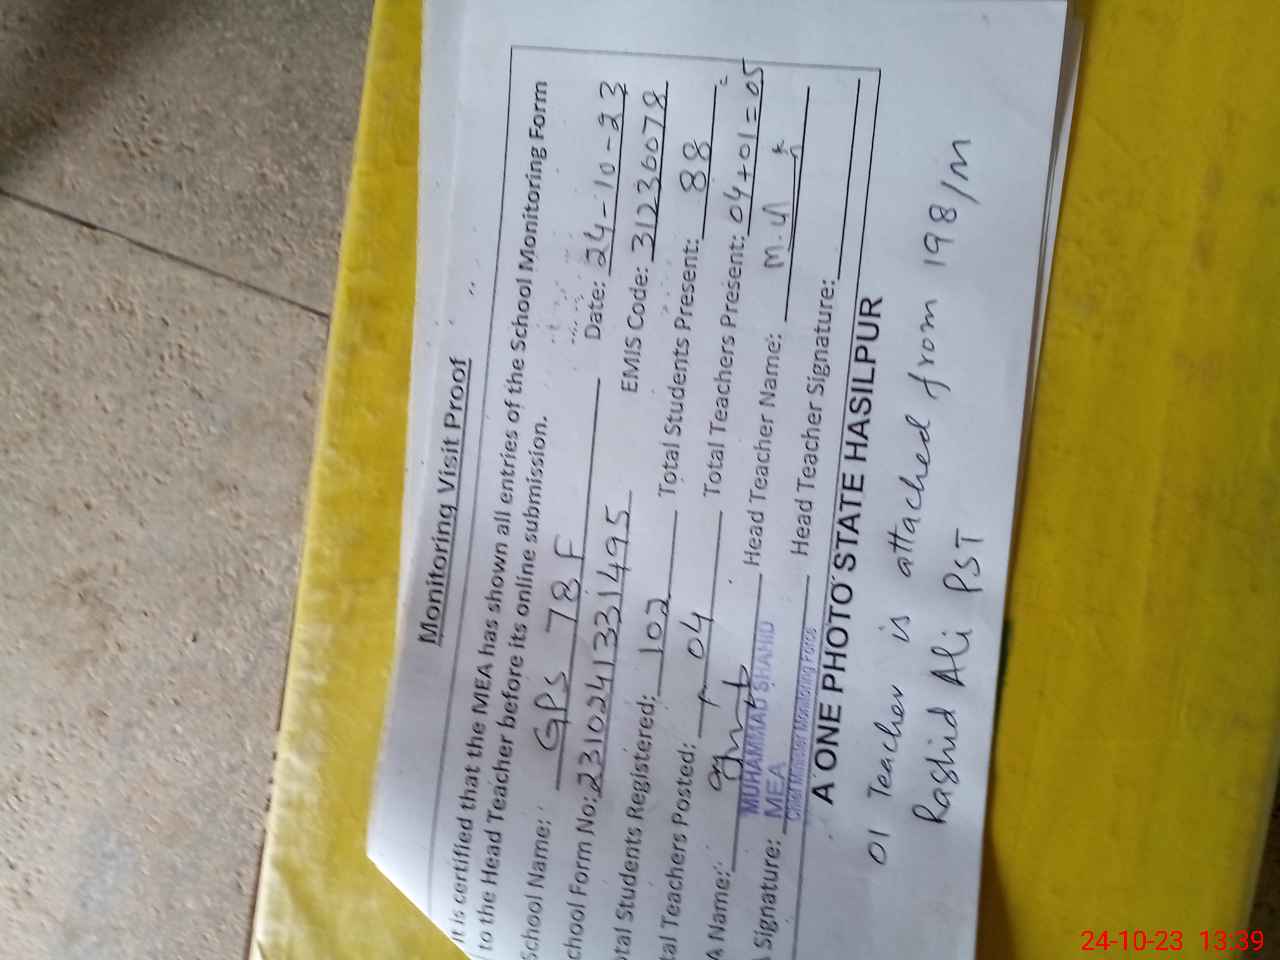 Monitoring Visit Proof
It is certified that the MEA has shown all entries of the School Monitoring Form
to the Head Teacher before its online submission.
School Name: GPS 78 F Date: 24-10-23
chool Form No: 2310241331495 EMIS Code: 31236078
otal Students Registered: 102 Total Students Present: 88
tal Teachers Posted: 04 Total Teachers Present: 04+01=05
A Name: Head Teacher Name:
MUHAMMAD SHAHID
Signature: MEA Head Teacher Signature:
Chief Minister Monitoring Force
A ONE PHOTO STATE HASILPUR
01 Teacher is attached from 198/M
Rashid Ali PST
24-10-23 13:39